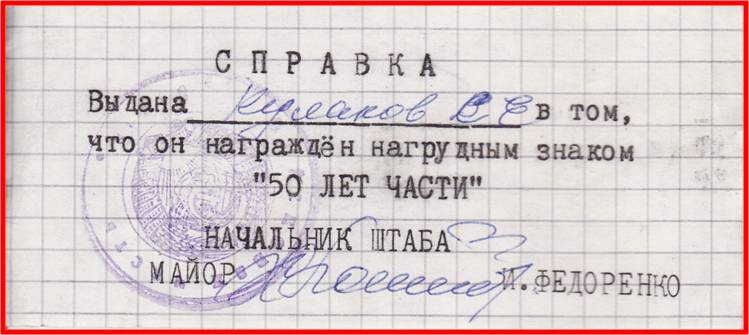 СПРАВКА
Выдана Кулаков В Е в том,
что он награждён нагрудным знаком
"50 ЛЕТ ЧАСТИ"
НАЧАЛЬНИК ШТАБА
МАЙОР И.ФЕДОРЕНКО